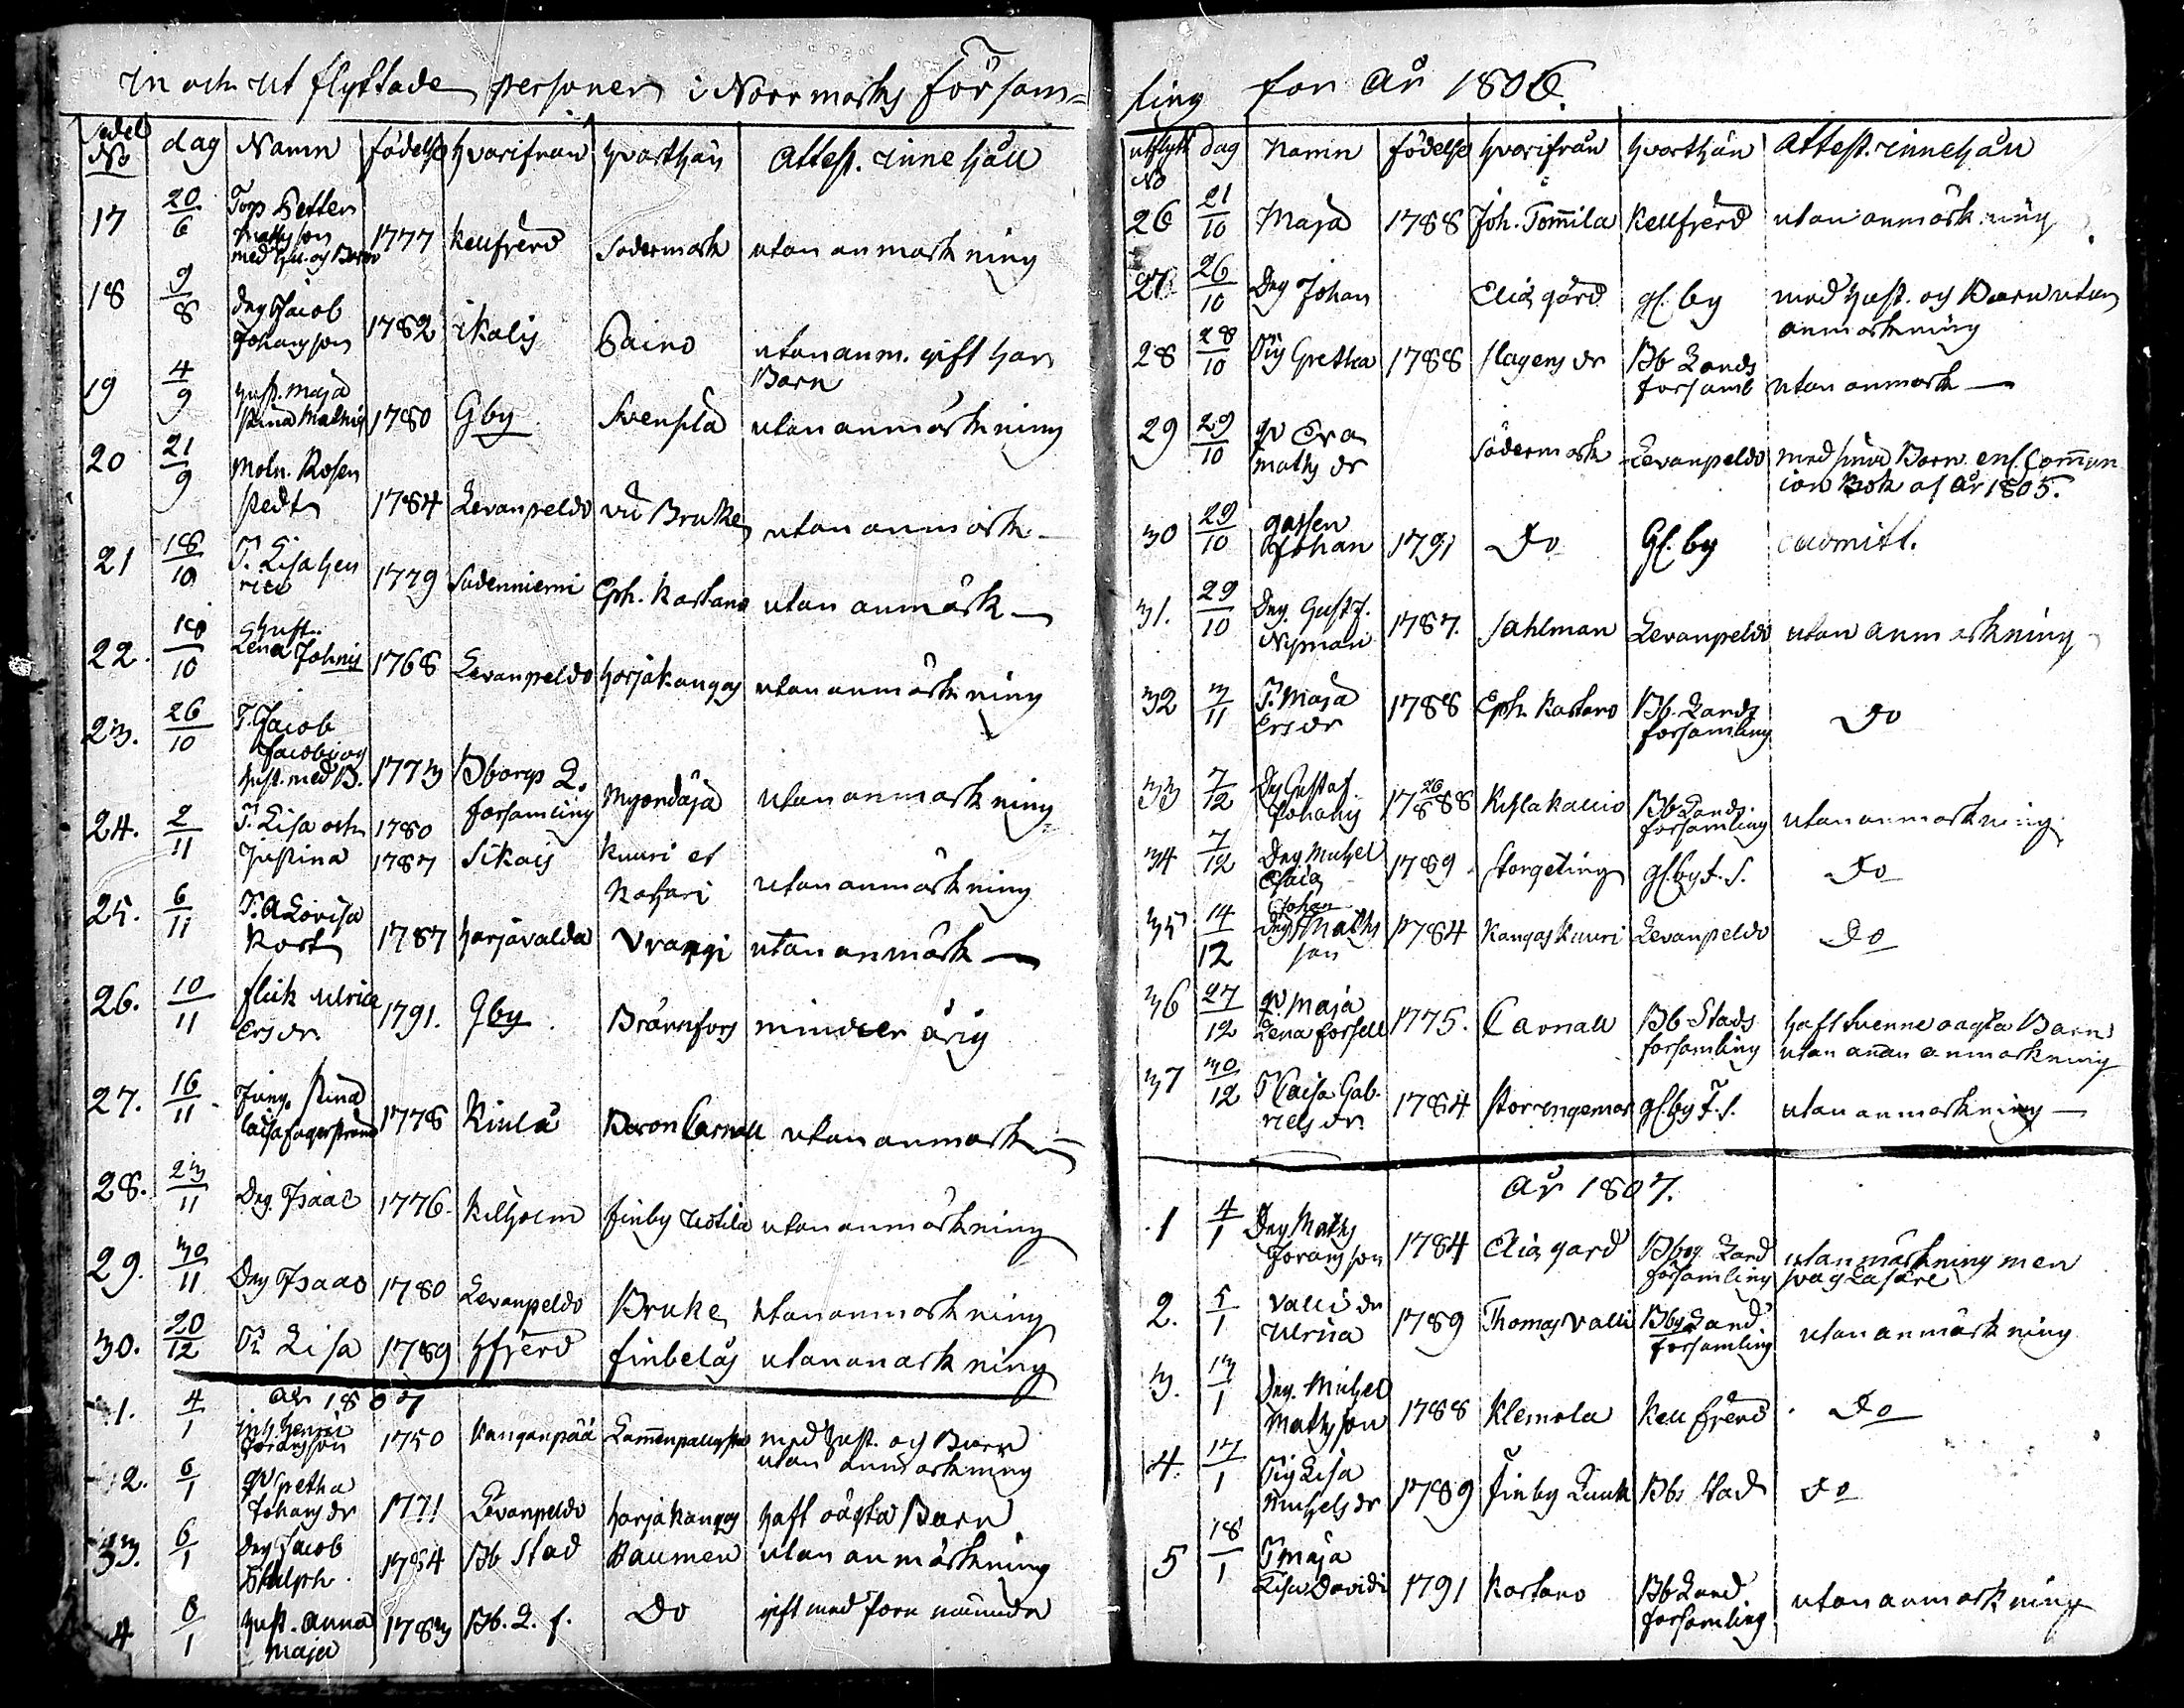 in och ut flyttade personer i Norrmarks Församling för År 1806.
sedel No dag Namn födelse hvarifrån hvarthän Attest. innehåll
17 20/6 Torp Petter Mathsson med hu. og Barn 1777 Kellfjerd Södermark utan anmärkning
18 9/8 Dreg Jacob Johansson 1782 ikalis Paino utan anm. gift har Barn
19 4/9 hust. Maja Stina Mathsd 1780 Gby Svensila utan anmärkning
20 21/9 Moln. Rosenstedt 1784 Levanpeldo vid Bruket utan anmärk.
21 18/10 P. Lisa Henrici 1779 Sadenniemi Eph. Kartano utan anmärk
22. 18/10 Hust. Lena Johnis 1768 Levanpeldo Harjakangas utan anmärkning
23. 26/10 T. Jacob Jacobi og hust. med B. 1773 Bborgs L. forsamling Myöndäjä utan anmärkning
24. 2/11 P. Lisa och Justina 1780 1787 Sikais Kuuri et Kohari utan anmärkning
25. 6/11 P. A Lovisa Kort 1787 Harjavalda Vrangi utan anmärk
26. 10/11 flick Ulrica Ersdr. 1791. Gby Brännfors minderårig
27. 16/11 Jung. Stina Caisa Fagerström 1778 Kiula Baron Carnall utan anmärk
28. 23/11 Dreg. Isaac 1776. Kilholm finby Uotila utan anmärkning
29. 30/11 Dreg Isaac 1780 Levanpeldo Bruket utan anmärkning
30. 20/12 Pi Lisa 1789 Hfjerd finbelås utan anärkning
År 1807
1. 4/1 Inh. Henric Johansson 1750 Kanganpää med hust. og Barn utan anmärkning
2. 6/1 qv Gretha Johansdr 1771 Levanpeldo Harjakangas haft oägta Barn
3. 6/1 Dreg Jacob Stolph 1784 Bb Stad Raumen utan anmärkning
4 8/1 hust. Anna Maja 1783 Bb. L. f. Do gift med förenämnde
utflytt No dag Namn födelse hvarifrån hvarthän Attest. innehåll
26 21/10 Maja 1788 Joh. Tommila Kellfjerd utan anmärkning
27 26/10 Dreg Johan Eliasgård gl. by med hust. og Barn utan anmärkning
28 28/10 Pig Gretha 1788 Slagersdr Bb Lands forsaml utan anmärk
29 29/10 qv Eva Mathsdr Södermark Levanpeldo med sina Barn enl. Communion Bok af År 1805.
30 29/10 gossen Johan 1791 Do Gl. by admitt.
31. 29/10 Dreg. Gustf. Nyman 1787. Sahlman Levanpeldo utan anmärkning
32 3/11 P. Maja Ersdr 1788 Eph. Kartano Bb. Lands forsamling Do
33 7/12 Dr Gustaf Johans 1788 26/8 Kyläkallio Bb Lands forsamling utan anmärkning
34 7/12 Dreg. Michel Esaia 1789 Storgeting gl. by f. s. Do
35 14/12 Dreg Johan Mathsson 1784 Kangas Kuuri Levanpeldo Do
36 27/12 qv. Maja Lena Forsell 1775. Carnall Bb Stads forsamling haft tvenne oagta Barn utan anan anmärkning
37 30/12 P Caisa Gabrielsdr. 1784 Storingemar gl. by f. s. utan anmärkning
År 1807.
1 4/1 Dreg Maths Joransson 1784 Elias gard Bborg. Land forsamling utan märkning men svag Läsare
2. 5/1 Vallis dr Ulrica 1789 Thomas Valli Bbg Land forsamling utan anmärkning
3. 13/1 Dreg. Michel Mathsson 1788 Klemola Kellfjerd Do
4. 17/1 Pig Lisa Michelsdr 1789 Finby Luuk Bbs Stad Do
5 18/1 P Maja Lisa Davidi 1791 Kartano Bb Land forsamling utan anmärkning